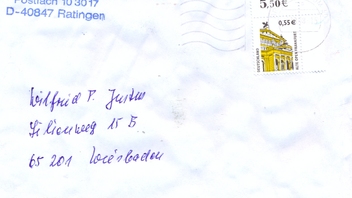 Postfach 10 30 17
D-40847 Ratingen
5,50 €
0,55 €
DEUTSCHLAND
ALTE OPER FRANKFURT
Wilfried F. Justus
Lilienweg 15 B
65 201 Wiesbaden